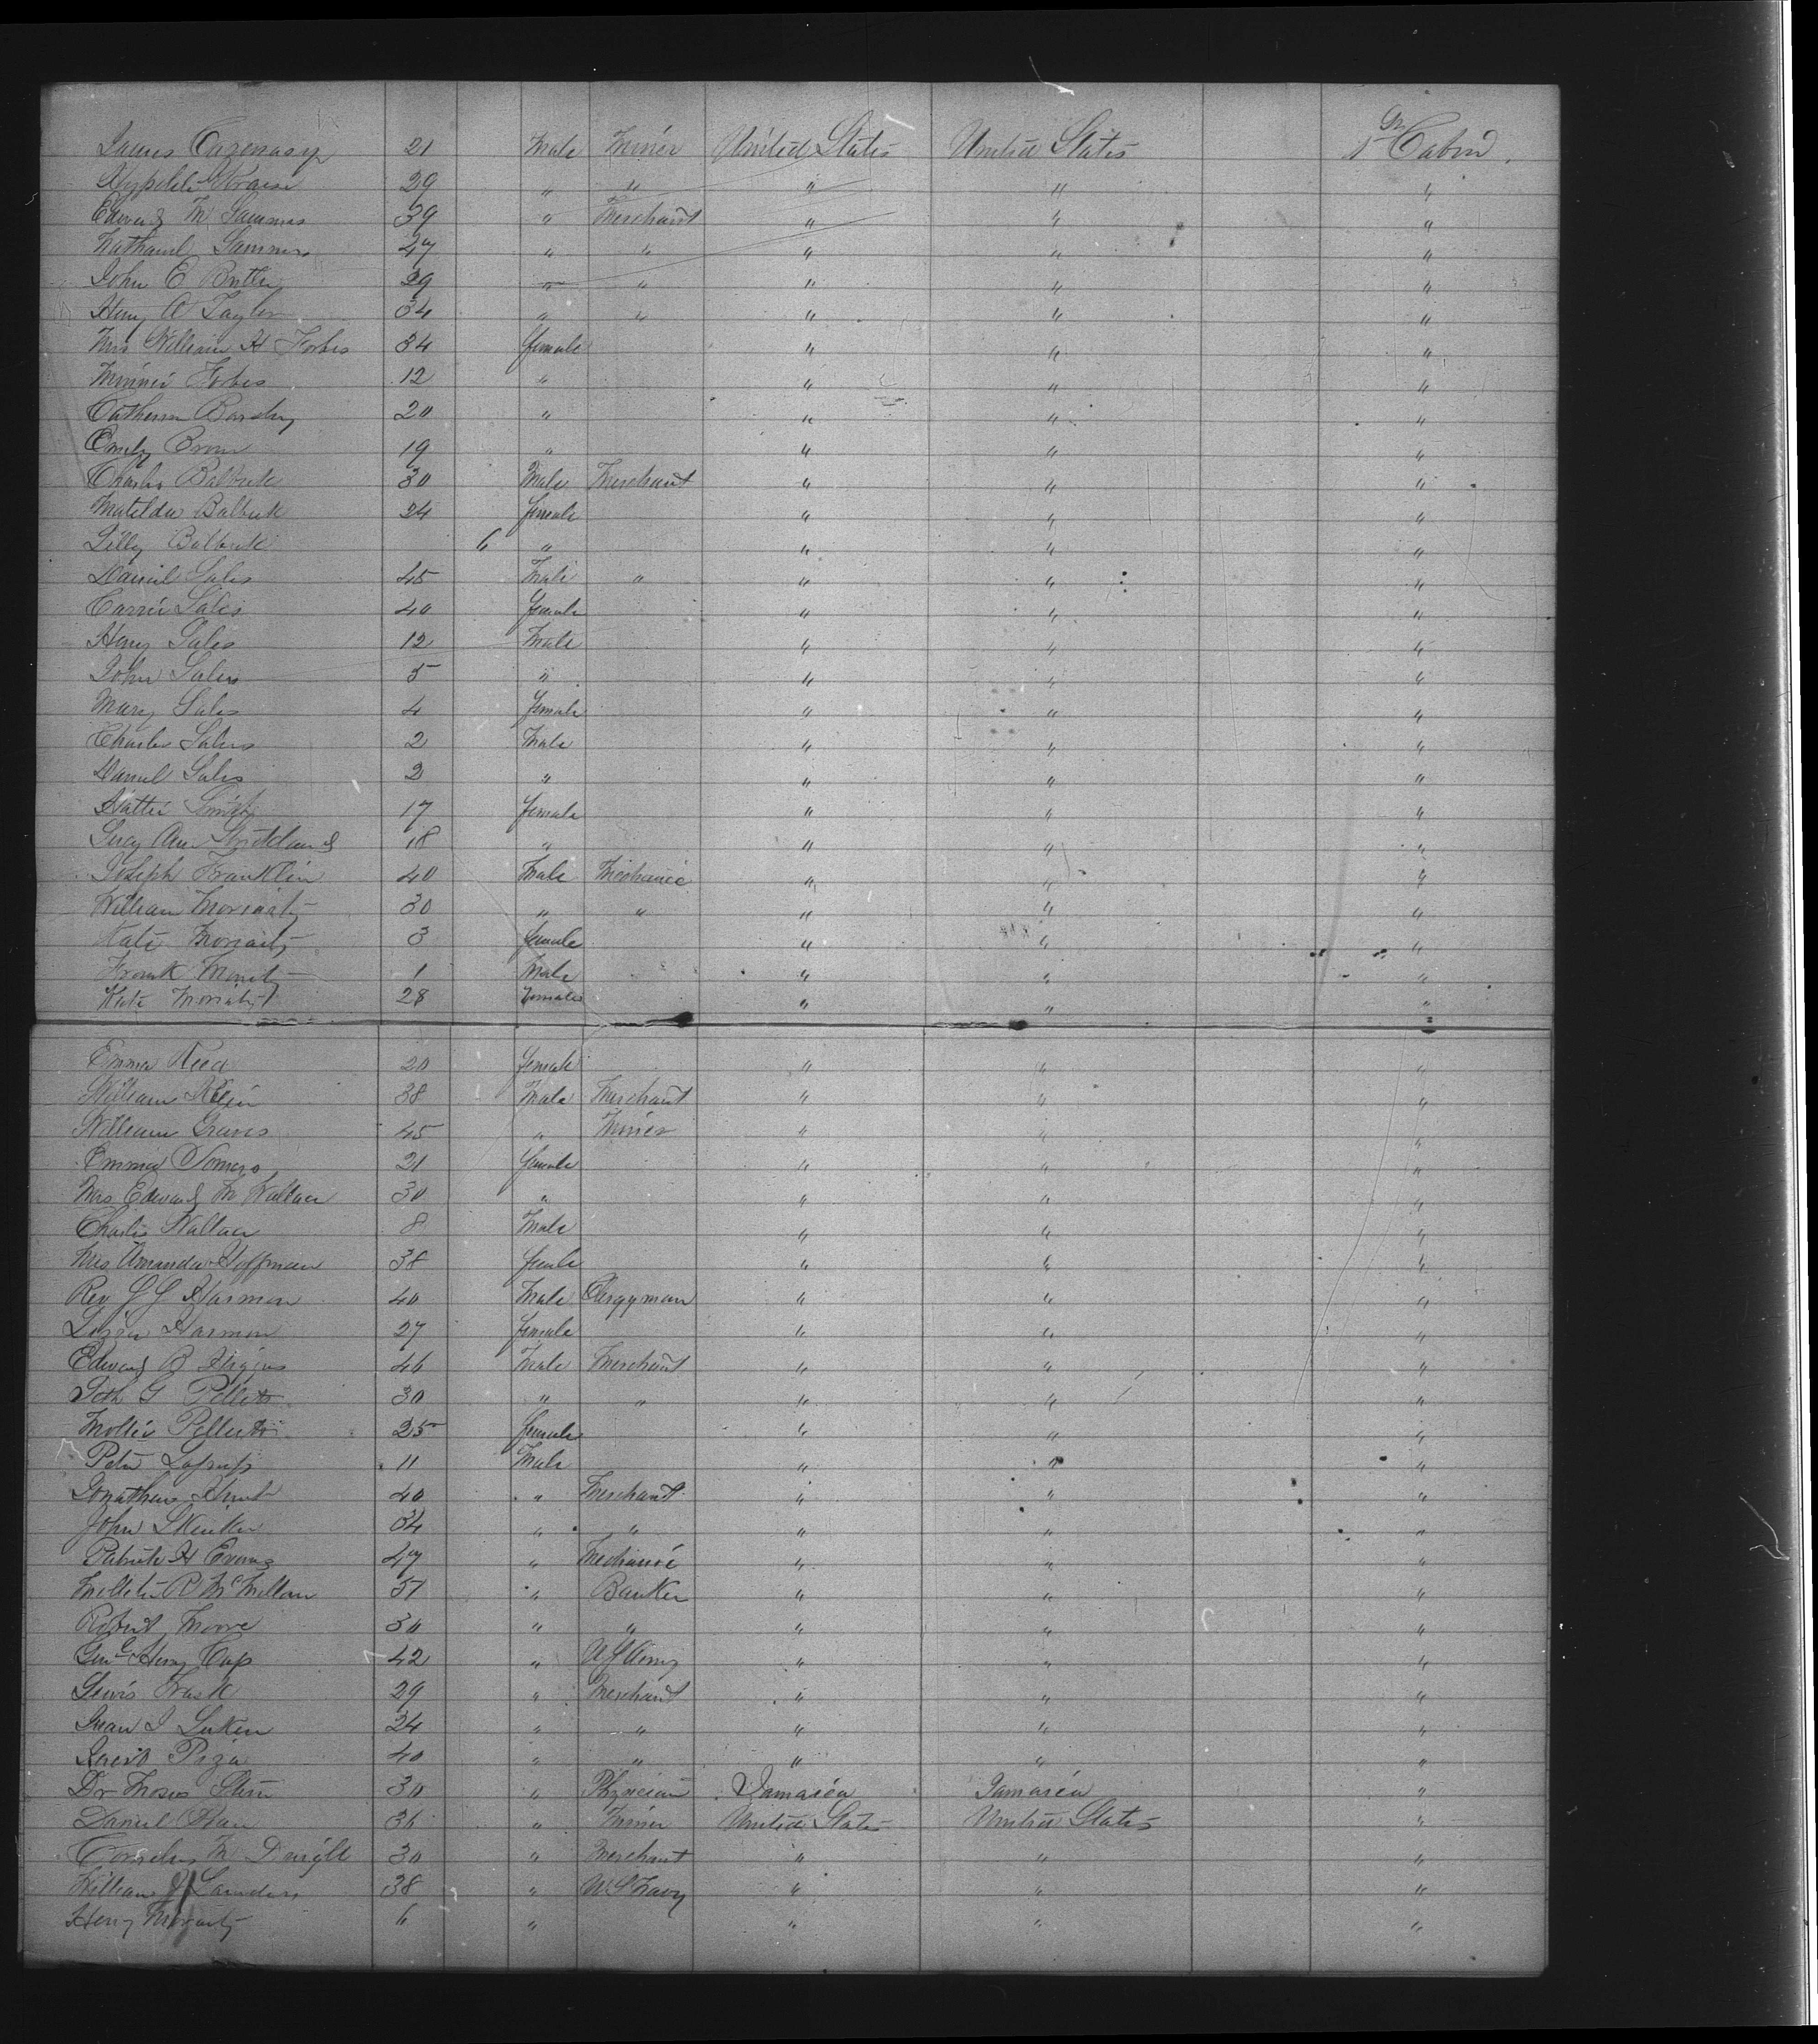 21 Male Miner United States United States 1st Cabin
29 " " " " "
Edward M Sammis 39 " Merchant " " "
Nathaniel Sammis 47 " " " " "
John E Butler 29 " " " " "
Henry A Taylor 34 " " " " "
Mrs William H Forbes 34 female " " "
Minnie Forbes 12 " " " "
Catherine 20 " " " "
Emily Brown 19 " " " "
Charles Balbeck 30 Male Merchant " " "
Matilda Balbeck 24 female " " "
Lilly Balbeck 6 " " " "
Daniel Sales 45 Male " " " "
Carrie Sales 40 female " " "
Henry Sales 12 Male " " "
John Sales 5 " " " "
Mary Sales 4 female " " "
Charles Sales 2 Male " " "
Daniel Sales 2 " " " "
Hattie Smith 17 female " " "
Lucy Ann Strickland 18 " " " "
Joseph Franklin 40 Male Mechanic " " "
William Moriarty 30 " " " " "
Kate Moriarty 3 female " " "
Frank Moriarty 1 Male " " "
Kate Moriarty 28 Female " " "
Emma Reed 20 female " " "
William Klein 38 Male Merchant " " "
William Graves 45 " Miner " " "
Emma Somers 21 female " " "
Mrs Edward M Wallace 30 " " " "
Charles Wallace 8 Male " " "
Mrs Amanda Hoffman 38 female " " "
Rev S S Harmon 40 Male Clergyman " " "
Lizzie Harmon 27 female " " "
Edward B Higgins 46 Male Merchant " " "
Seth G 30 " " " " "
Mollie 25 female " " "
Peter 11 Male " " "
Jonathan Hunt 40 " Merchant " " "
John Skinker 34 " " " " "
Patrick H Evans 47 " Mechanic " " "
R McMillan 51 " Banker " " "
Robert Moore 30 " " " " "
Genl Henry 42 " U S Army " " "
Lewis Trask 29 " Merchant " " "
Juan J Luken 24 " " " " "
David Piza 40 " " " " "
Dr Moses Stern 30 " Physician Jamaica Jamaica "
Daniel 36 " Miner United States United States "
Cornelius M 30 " Merchant " " "
William J Saunders 38 " U S Navy " " "
Henry Moriarty 6 " " " "